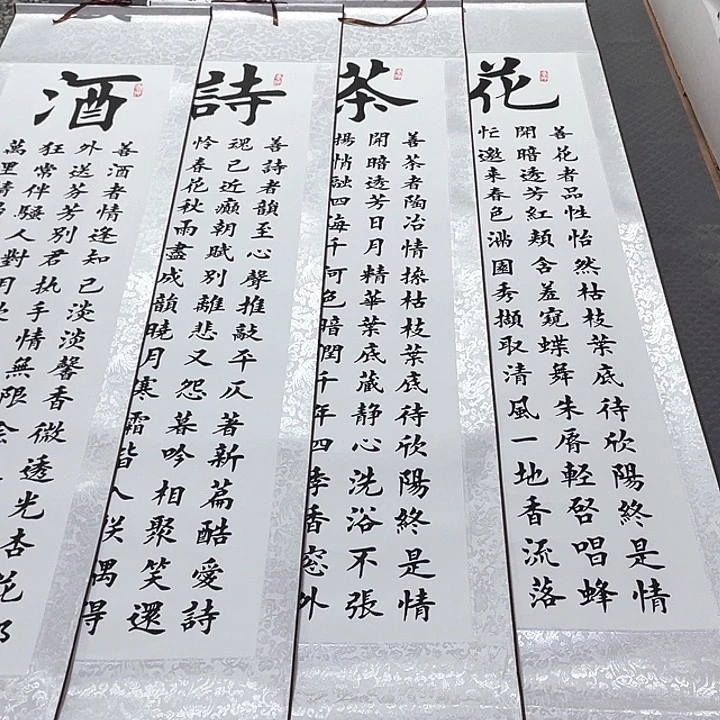 花
善花者品性怡然枯枝葉底待欣陽終是情
開暗透芳紅頰含羞窺蝶舞朱唇輕啓唱蜂
忙邀来春色滿園秀擷取清風一地香流落
茶
善茶者陶冶情操枯枝葉底待欣陽終是情
開暗透芳日月精華葉底蔵靜心洗浴不張
揚悄四海千河色暗閏千年四季香窓外
詩
善詩者韻至心聲推敲平仄著新篇酷愛詩
魂已近癲朝賦別離悲又怨暮吟相聚笑還
怜春花秋雨盡成韻曉月寒霜皆入联偶得
酒
善酒者情逢知己淡淡馨香微透光杏花
外送芬芳別君执手情無限
狂常伴騷人對月
萬里情